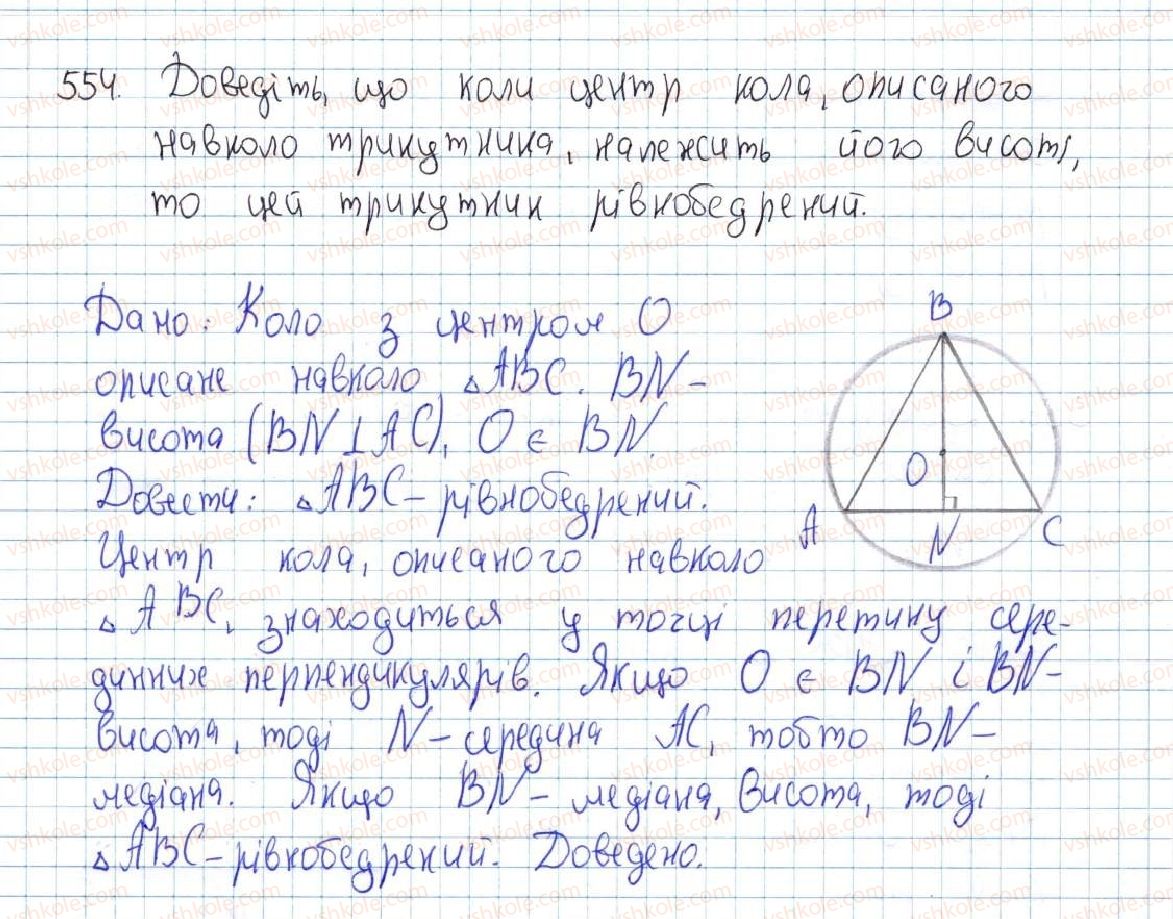 554. Доведіть, що коли центр кола, описаного
навколо трикутника, належить його висоті,
то цей трикутник рівнобедрений.
Дано: Коло з центром O
описане навколо △ABC. BN-
висота (BN⊥AC), O є BN.
Довести: △ABC - рівнобедрений.
Центр кола, описаного навколо
△ABC, знаходиться у точці перетину сере-
динних перпендикулярів. Якщо O є BN і BN-
висота, тоді N - середина AC, тобто BN-
медіана. Якщо BN - медіана, висота, тоді
△ABC - рівнобедрений. Доведено.
B
O
A
N
C
vshkole.com